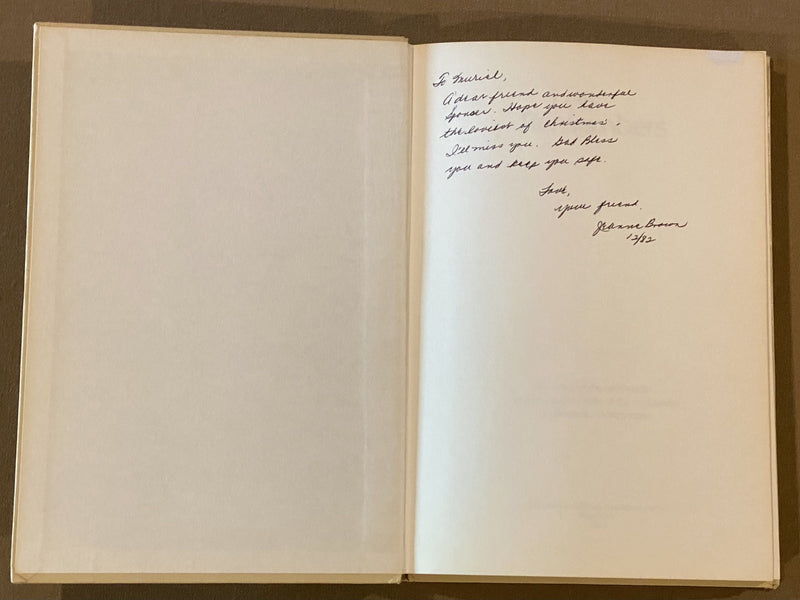 To Muriel,
A dear friend and wonderful
Sponser. Hope you have
the loviest of Christmas.
I'll miss you. God Bless
you and keep you safe.
Love,
your friend.
Jeanne Brown
12/82